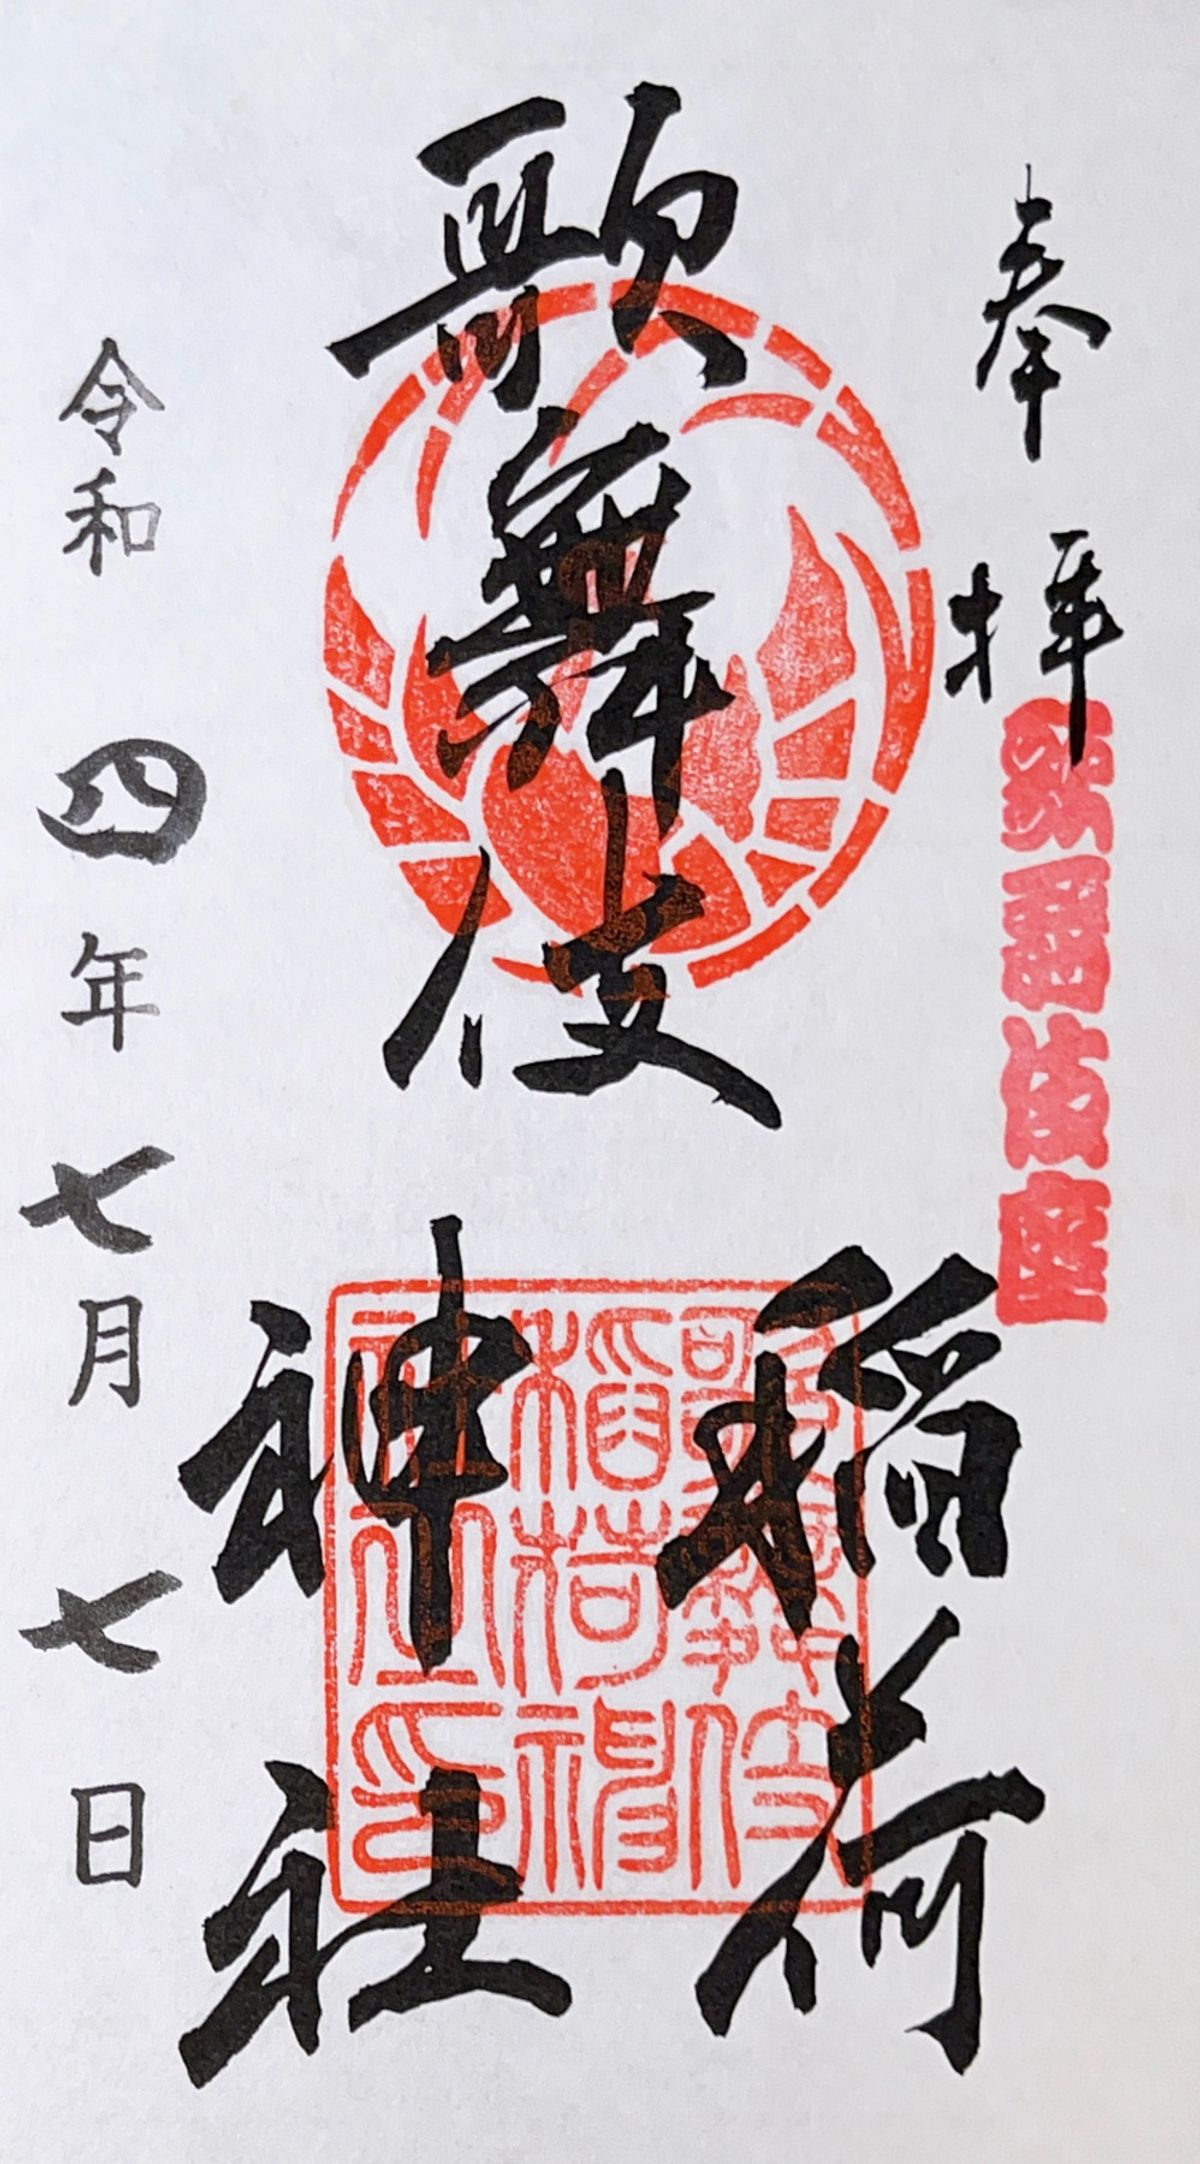 奉拝
歌舞伎座
歌舞伎
稲荷
神社
歌舞伎
稲荷神
社之印
令和四年七月七日